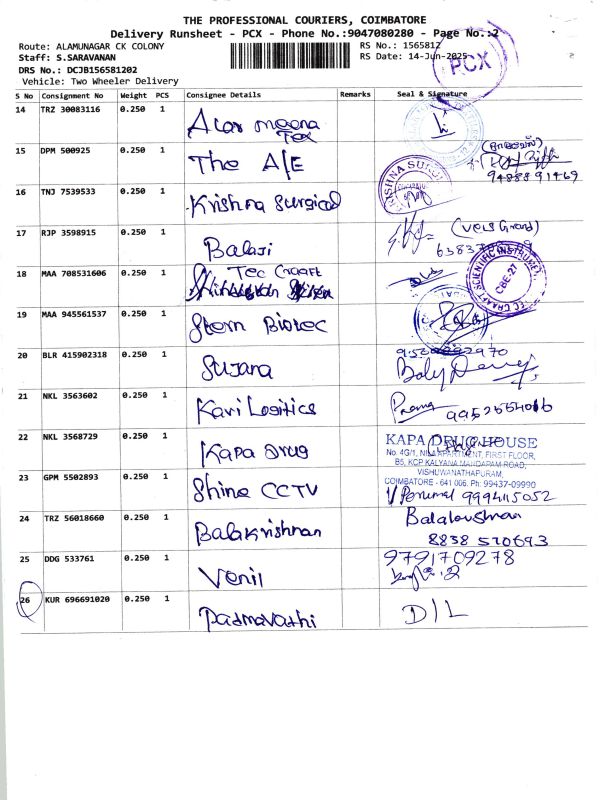 THE PROFESSIONAL COURIERS, COIMBATORE
Delivery Runsheet - PCX - Phone No.:9047080280 - Page No.:2
Route: ALAMUNAGAR CK COLONY
RS No.: 1565812
Staff: S.SARAVANAN
RS Date: 14-Jun-2025
PCX
DRS No.: DCJB156581202
Vehicle: Two Wheeler Delivery
S No Consignment No Weight PCS Consignee Details Remarks Seal & Signature
14 TRZ 30083116 0.250 1
Tex
15 DPM 500925 0.250 1 The A/E
9488891469
16 TNJ 7539533 0.250 1 Krishna Surgical
17 RJP 3598915 0.250 1 Balaji
18 MAA 708531606 0.250 1 Tec Craaft
TEC CRAAFT SCIENTIFIC INSTRUMENT
CBE-27
19 MAA 945561537 0.250 1 Stern Biotec
20 BLR 415902318 0.250 1 Sujana
21 NKL 3563602 0.250 1 Kavi Logitics
22 NKL 3568729 0.250 1 Kapa Drug
KAPA DRUG HOUSE
No. 4G/1, NILA APARTMENT, FIRST FLOOR,
B5, KCP KALYANA MANDAPAM ROAD,
VISHUWANATHAPURAM,
COIMBATORE - 641 006. Ph: 99437-09990
23 GPM 5502893 0.250 1 Shine CCTV
24 TRZ 56018660 0.250 1 Balakrishnan
8838 570693
25 DDG 533761 0.250 1 Venil
9791709278
26 KUR 696691020 0.250 1 Padmavathi D/L